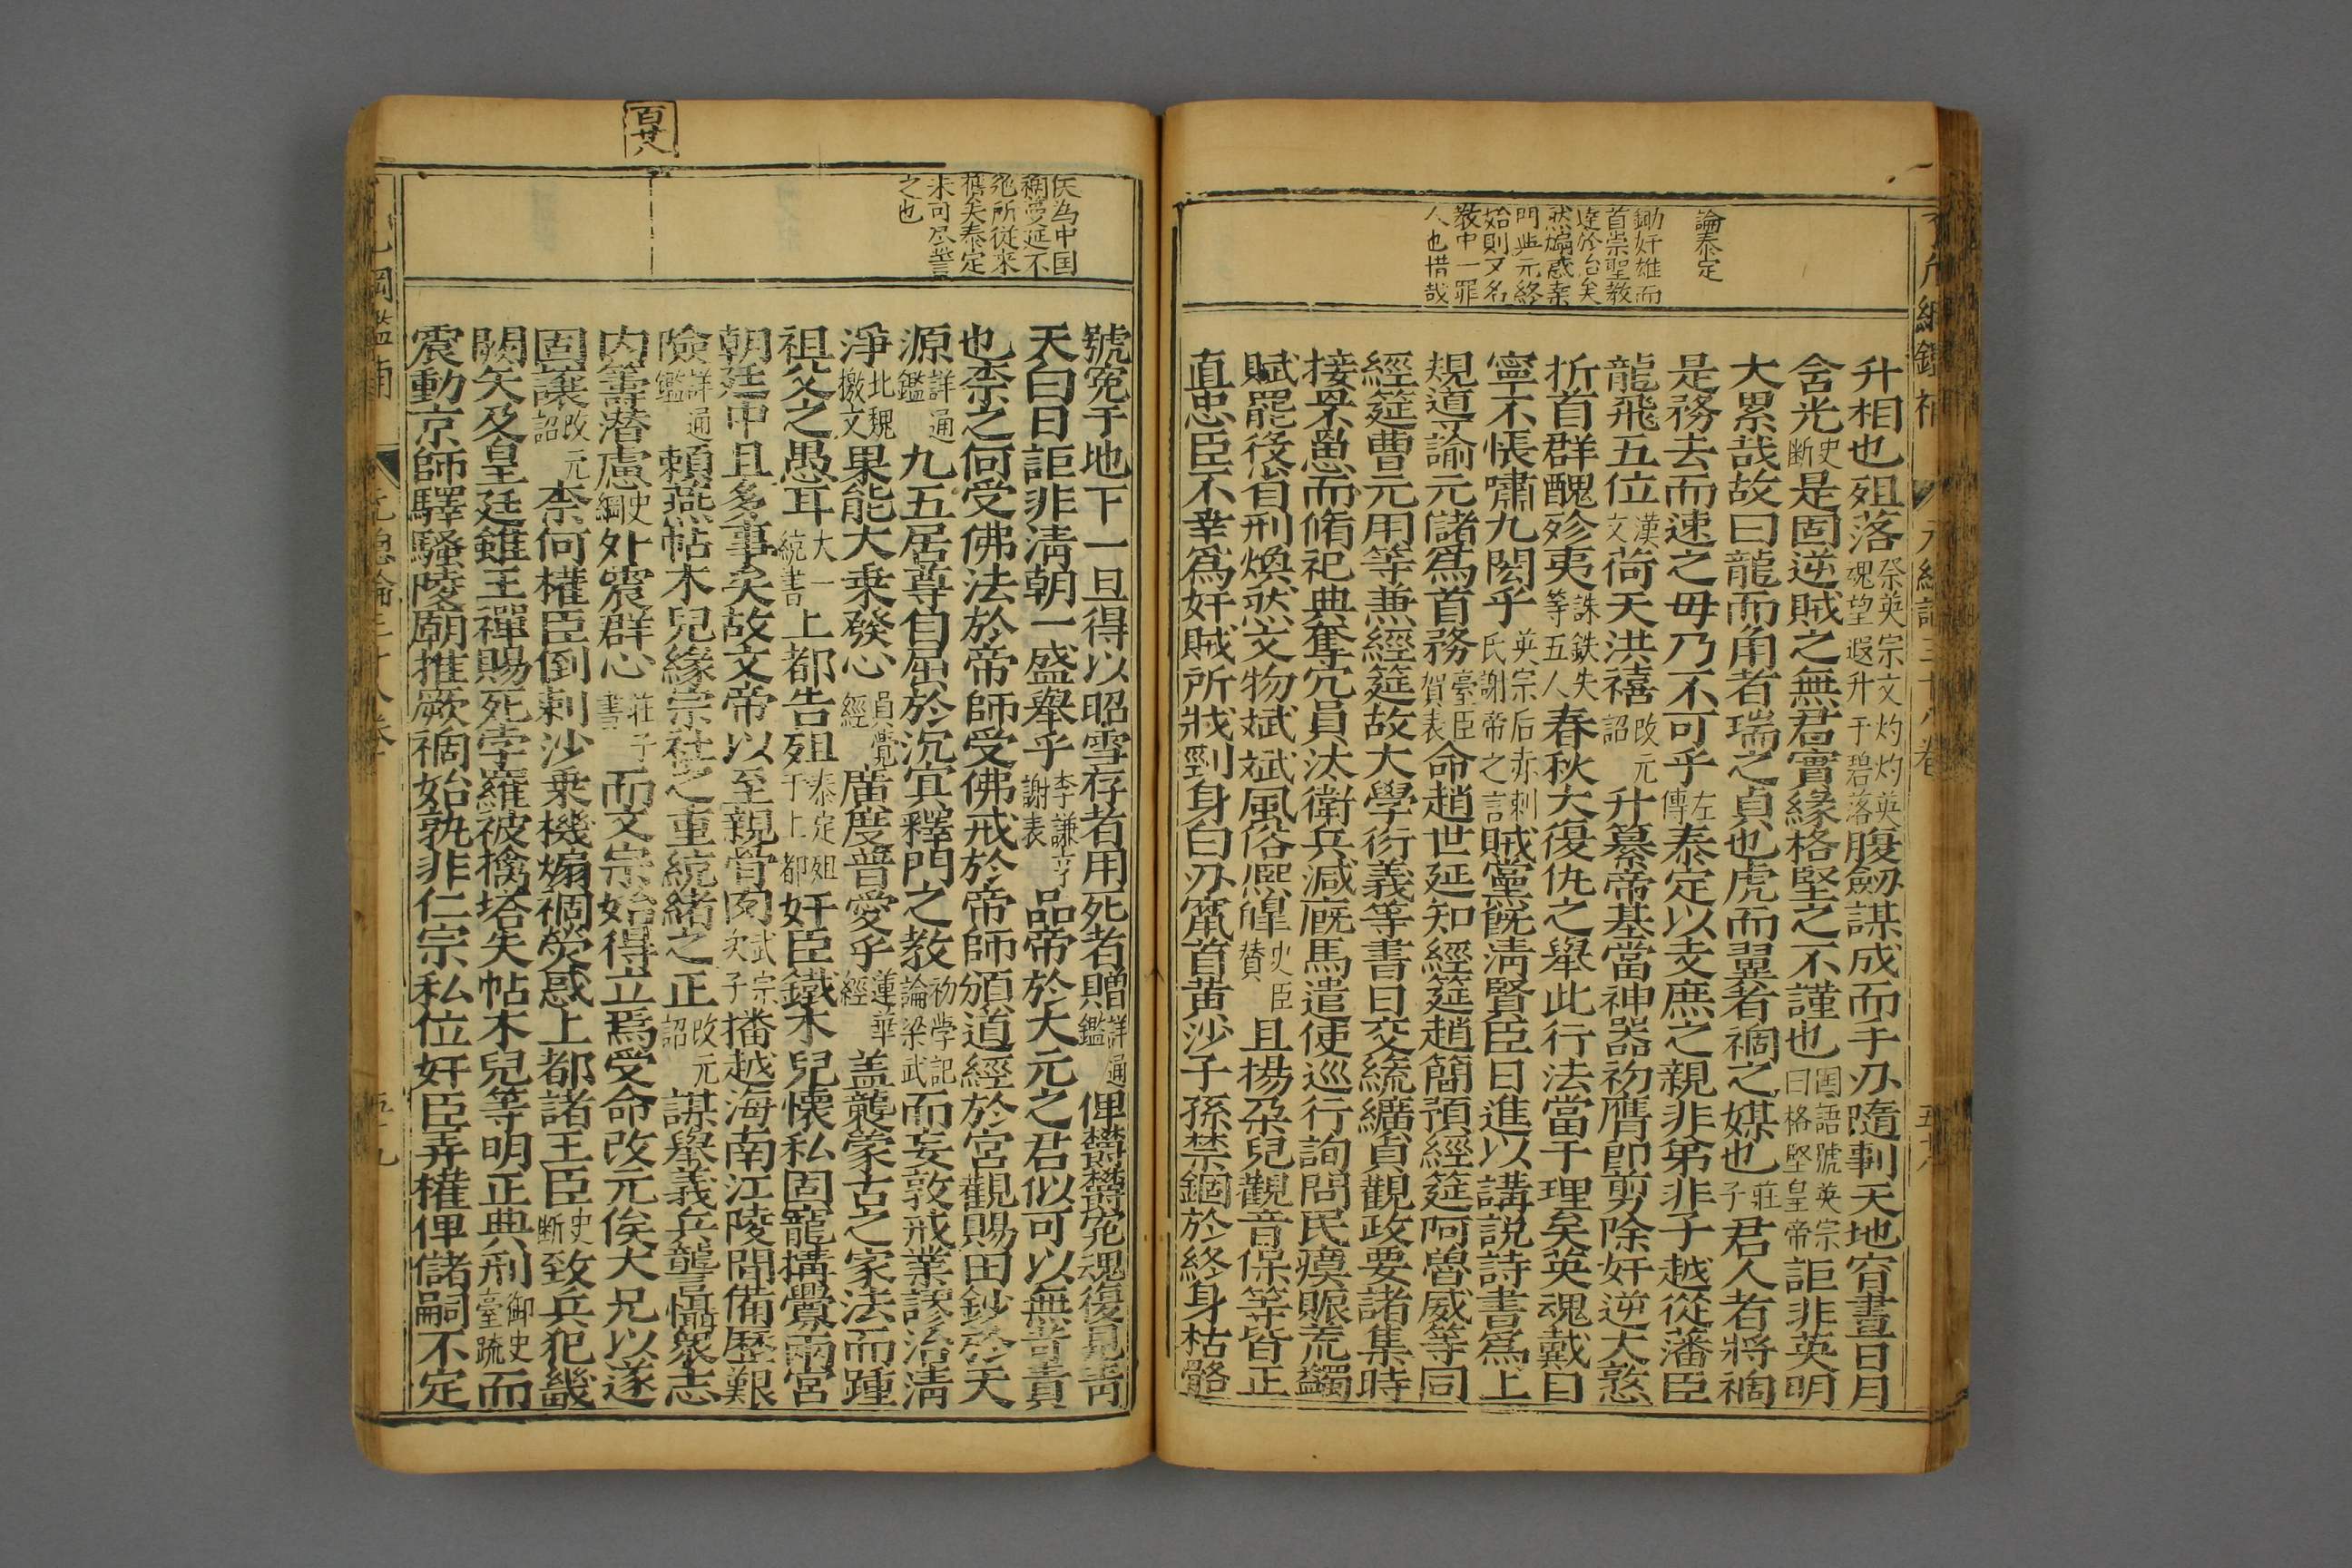 論泰定
鋤奸雄而
首崇聖教
達於治矣
然煽惑桒
門與元終
始則又名
教中一罪
人也惜哉
升相也殂落祭英宗文灼灼英魂望遐升于碧落腹劒謀成而手刃隨剚天地窅晝日月
含光史断是固逆賊之無君實緣格堅之不謹也国語號英宗曰格堅皇帝詎非英明
大累哉故曰龍而角者瑞之貞也虎而翼者禍之媒也莊子君人者將禍
是務去而速之毋乃不可乎左傳泰定以支庶之親非弟非子越從藩臣
龍飛五位漢文荷天洪禧改元詔升纂帝基當神器初膺即剪除奸逆大憝
折首群醜殄夷誅鉄失等五人春秋大復仇之舉此行法當于理矣英魂戴曰
寧不悵嘯九閎乎英宗后亦剌氏謝帝之言賊黨旣清賢臣日進以講說詩書爲上
規道諭元儲爲首務臺臣賀表命趙世延知經筵趙簡預經筵阿魯威等同
經筵曹元用等兼經筵故大學衍義等書日交統纊貞觀政要諸集時
接罘罳而脩祀典奪冗員汰衛兵減廐馬遣使巡行詢問民瘼賑荒蠲
賦罷役省刑煥然文物斌斌風俗熈皥史臣賛且揚朶兒觀音保等皆正
直忠臣不幸爲奸賊所戕剄身白刃竄首黄沙子孫禁錮於終身枯骼
百廿八
仸為中国
禍愛延不
絶所從來
舊矣泰定
未可尽訾
之也
號冤于地下一旦得以昭雪存者用死者贈詳通鑑俾欝欝寃魂復見靑
天白日詎非淸朝一盛舉乎李謙亨謝表品帝於大元之君似可以無苛責
也柰之何受佛法於帝師受佛戒於帝師頒道經於宮觀賜田鈔於天
源詳通鑑九五居尊自屈於沉宜釋門之教初学記論梁武而妄敦戒業謬治淸
淨北魏檄文果能大乗發心員覺經廣度普愛乎蓮華經盖襲蒙古之家法而踵
祖父之愚耳大一統書上都告殂泰定殂于上都奸臣鐵木兒懷私固寵搆釁兩宮
朝廷中且多事矣故文帝以至親骨肉武宗次子播越海南江陵間備歷艱
險詳通鑑賴燕帖木兒緣宗社之重統緒之正改元詔謀舉義兵讋懾衆志
内籌潜慮史綱外震群心莊子書而文宗始得立焉受命改元俟大兄以遂
固讓改元詔柰何權臣倒剌沙乗機煽禍熒惑上都諸王臣史断致兵犯畿
闕矣及皇廷錐王禪賜死孛羅被擒塔失帖木兒等明正典刑御史臺疏而
震動京師驛騷陵廟推厥禍始孰非仁宗私位奸臣弄權俾儲嗣不定